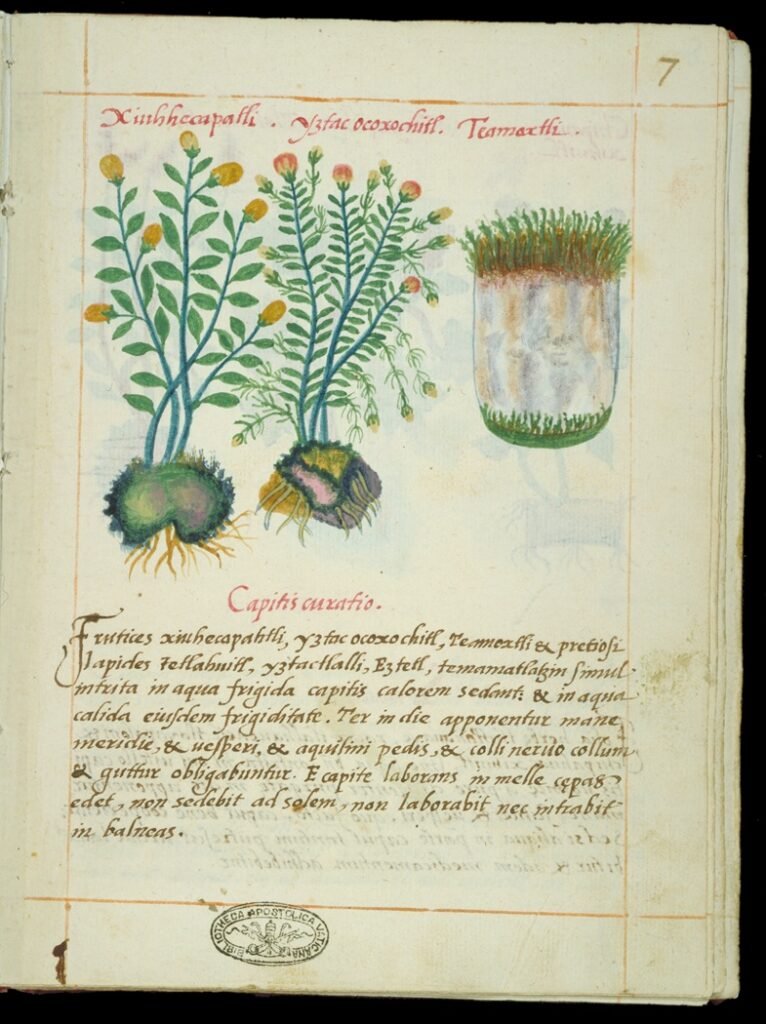 7
Xiuhhecapatli . Yztac ocoxochitl. Teamoxtli .
Capitis curatio.
Frutices xiuhecapahtli, yztac ocoxochitl, Teamoxtli & pretiosi
lapides tetlahuitl, yztactlalli, Eztetl, temamatlatzin simul
intrita in aqua frigida capitis calorem sedant: & in aqua
calida eiusdem frigiditate. Ter in die apponentur mane
meridie, & uesperi, & aquilini pedis, & colli neruo collum
& guttur obligabuntur. E capite laborans in melle cępas
edet, non sedebit ad solem, non laborabit nec intrabit
in balneas.
BIBLIOTHECA APOSTOLICA VATICANA